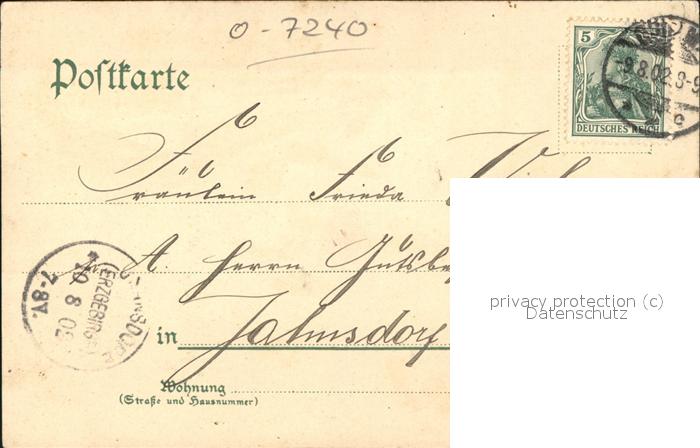 0-7240
Postkarte
5
DEUTSCHES REICH
-9.8.02.8-9
Fräulein Frieda
p. A. Herrn Gutsbe
(ERZGEBIRGE)
* 10 8 02
7-8V.
in Jahnsdorf
Wohnung
(Straße und Hausnummer)
privacy protection (c)
Datenschutz